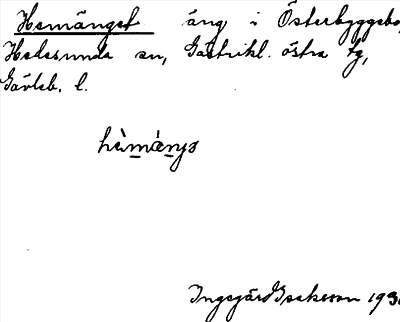 Hemänget äng i Österbyggebo,
Hedesunda sn, Gästrikl. östra tg,
Gävleb. l.
hèmä́ŋs
Ingegärd Isakson 193